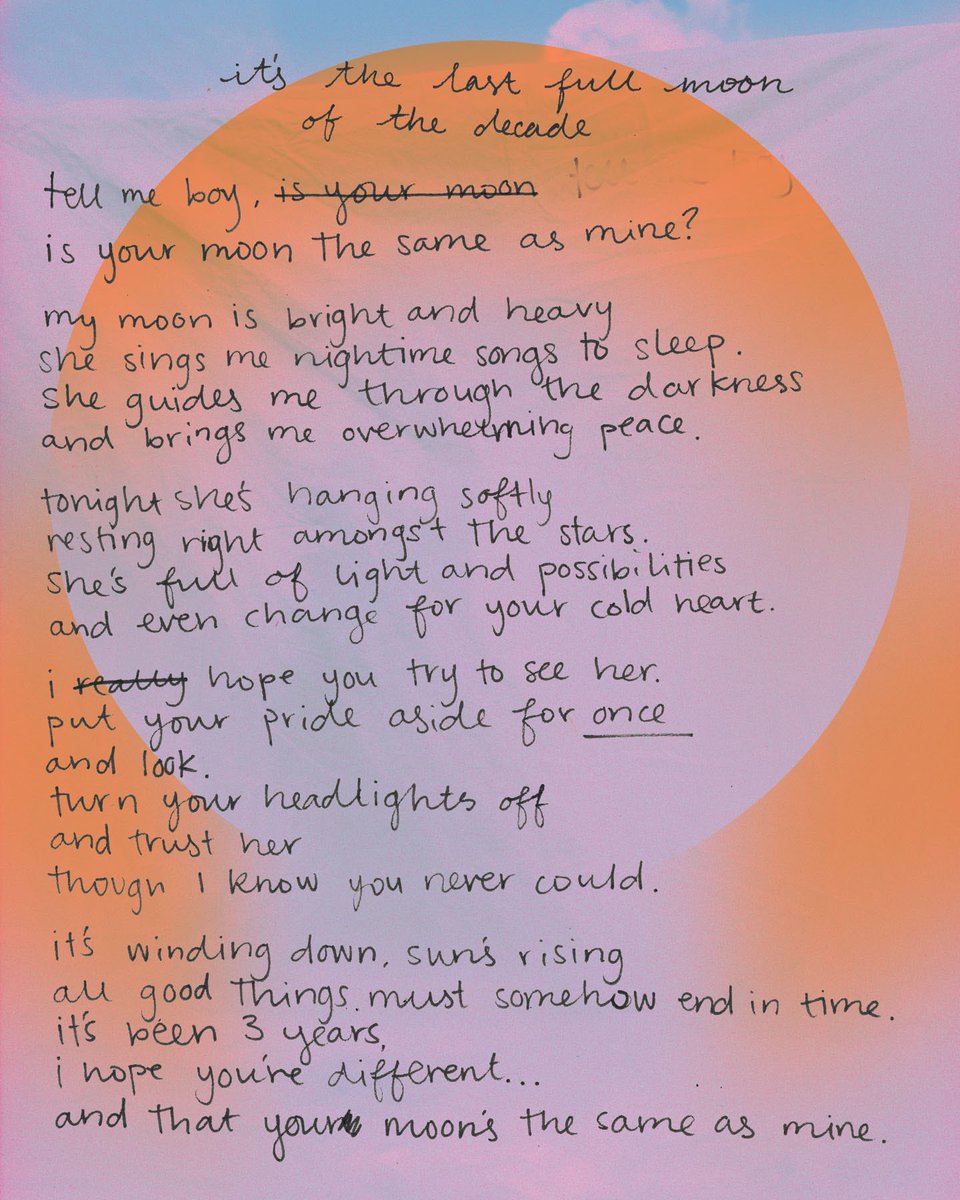 it's the last full moon
of the decade
tell me boy, is your moon
is your moon the same as mine?
my moon is bright and heavy
she sings me nightime songs to sleep.
she guides me through the darkness
and brings me overwhelming peace.
tonight she's hanging softly
resting right amongst the stars.
she's full of light and possibilities
and even change for your cold heart.
i really hope you try to see her.
put your pride aside for once
and look.
turn your headlights off
and trust her
though I know you never could.
it's winding down, sun's rising
all good things must somehow end in time.
it's been 3 years,
i hope you're different...
and that your moon's the same as mine.